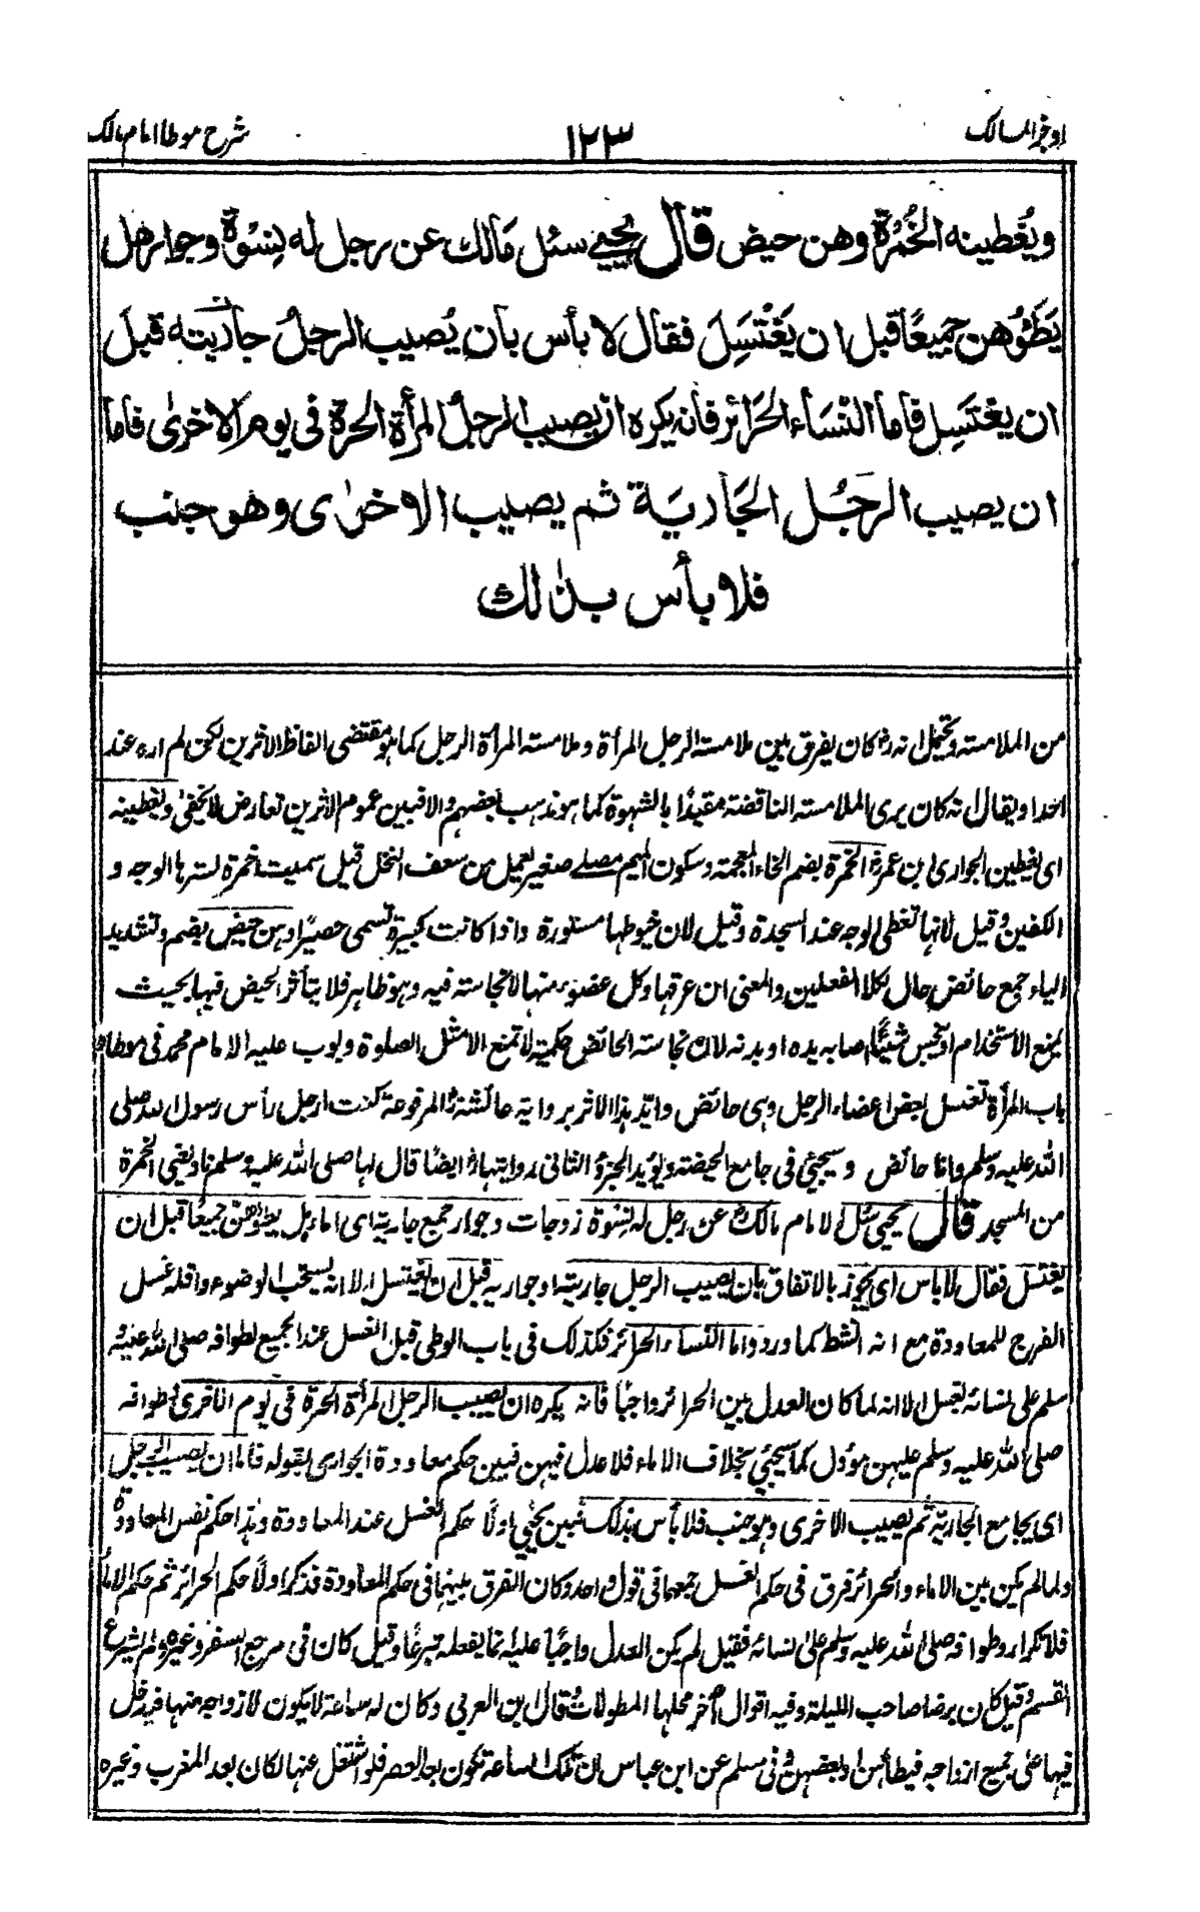 اوجز المسالك ١٢٣ شرح موطا امام مالك
ويُغطينه الخُمُرَة وهن حيض قال يُحيٰي سئل مَالك عن رجل له نِسْوَة وجوارهل
يَطَؤُهن جميعًا قبل ان يَغْتَسِلَ فقال لا بأس بأن يُصيب الرجلُ جاريته قبل
ان يغتَسِل فأما النسَاء الحَرَائر فأنه يكره ان يصيب الرجلُ المرأة الحرة في يوم الاخرىٰ فاما
ان يصيب الرجُل الجَاريَة ثم يصيب الاخرٰى وهو جنب
فلا بأس بذٰلك
من الملامسته ويحتمل انه رض كان يفرق بين ملامسته الرجل المرأة وملامسته المرأة الرجل كما هو مقتضى الفاظ الاثرين لكن لم اره عند
احد او يقال انه كان يرى الملامسته الناقضته مقيدًا بالشهوة كما هو مذهب بعضهم والا فبين عموم الاثرين تعارض لا يخفى ويغطينه
اى يغطين الجوارى ابن عمر الخمرة بضم الخاء المعجمة وسكون الميم مصلے صغير يعمل من سعف النخل قيل سميت خمرة لسترها الوجه و
الكفين وقيل لانها تغطى الوجه عند السجدة وقيل لان خيوطها مستورة واذا كانت كبيرة تسمى حصيرًا وهن حيض بضم وتشديد
الياء جمع حائض حال لكلا الفعلين والمعنى ان عرقها وكل عضو منها لا نجاسته فيه وهو ظاهر فلا يتأثر الحيض فيها بحيث
يمنع الاستخدام او ينجس شيئًا اصابه يده او بدنه لان نجاسته الحائض حكمية لا تمنع الا مثل الصلوة وبوب عليه الامام محمد في موطاه
باب المرأة تغسل بعض اعضاء الرجل وهى حائض وايد هذا الاثر برواية عائشة المرفوعة كنت ارجل رأس رسول الله صلى
الله عليه وسلم وانا حائض وسيجيئ في جامع الحيضته ويؤيد الجزؤ الثانى روايتها ايضًا قال لها صلى الله عليه وسلم ناوليني الخمرة
من المسجد قال يحيى سئل الامام مالك عن رجل له نسوة زوجات وجوار جمع جارية اى اماء هل يطؤهن جميعًا قبل ان
يغتسل فقال لا باس اى يجوز بالاتفاق بان يصيب الرجل جاريته او جواريه قبل ان يغتسل الا انه يستحب الوضوء واقله غسل
الفرج للمعاودة مع انه انشط كما ورد واما النساء الحرائر فكذلك في باب الوطى قبل الغسل عند الجميع لطوافه صلى الله عليه و
سلم على نسائه بغسل الا انه لما كان العدل بين الحرائر واجبًا فانه يكره ان يصيب الرجل المرأة الحرة في يوم الاخرى وطوافه
صلى الله عليه وسلم عليهن مؤول كما سيجيئ بخلاف الاماء فلا عدل فيهن فبين حكم معاودة الجوارى بقوله فاما ان يصيب الرجل
اى يجامع الجارية ثم يصيب الاخرى وهو جنب فلا بأس بذلك فبين يحيى اولًا حكم الغسل عند المعاودة وهذا حكم نفس المعاودة
ولما لم يكن بين الاماء والحرائر فرق في حكم الغسل جمعها في قول واحد وكان الفرق بينهما في حكم المعاودة فذكر اولًا حكم الحرائر ثم حكم الاماء
فلا تكرار وطوافه صلى الله عليه وسلم على نسائه فقيل لم يكن العدل واجبًا عليه انما يفعله تبرعًا وقيل كان في مرجع السفر وغيره ولم يشرع
القسم وقيل كان برضا صاحب الليلة وفيه اقوال اخر محلها المطولات قال ابن العربي وكان له ساعة لا يكون لازواجه منها فيدخل
فيها على جميع ازواجه فيطأهن او بعضهن وفى مسلم عن ابن عباس ان تلك الساعة تكون بعد العصر فلو اشتغل عنها لكان بعد المغرب وغيره